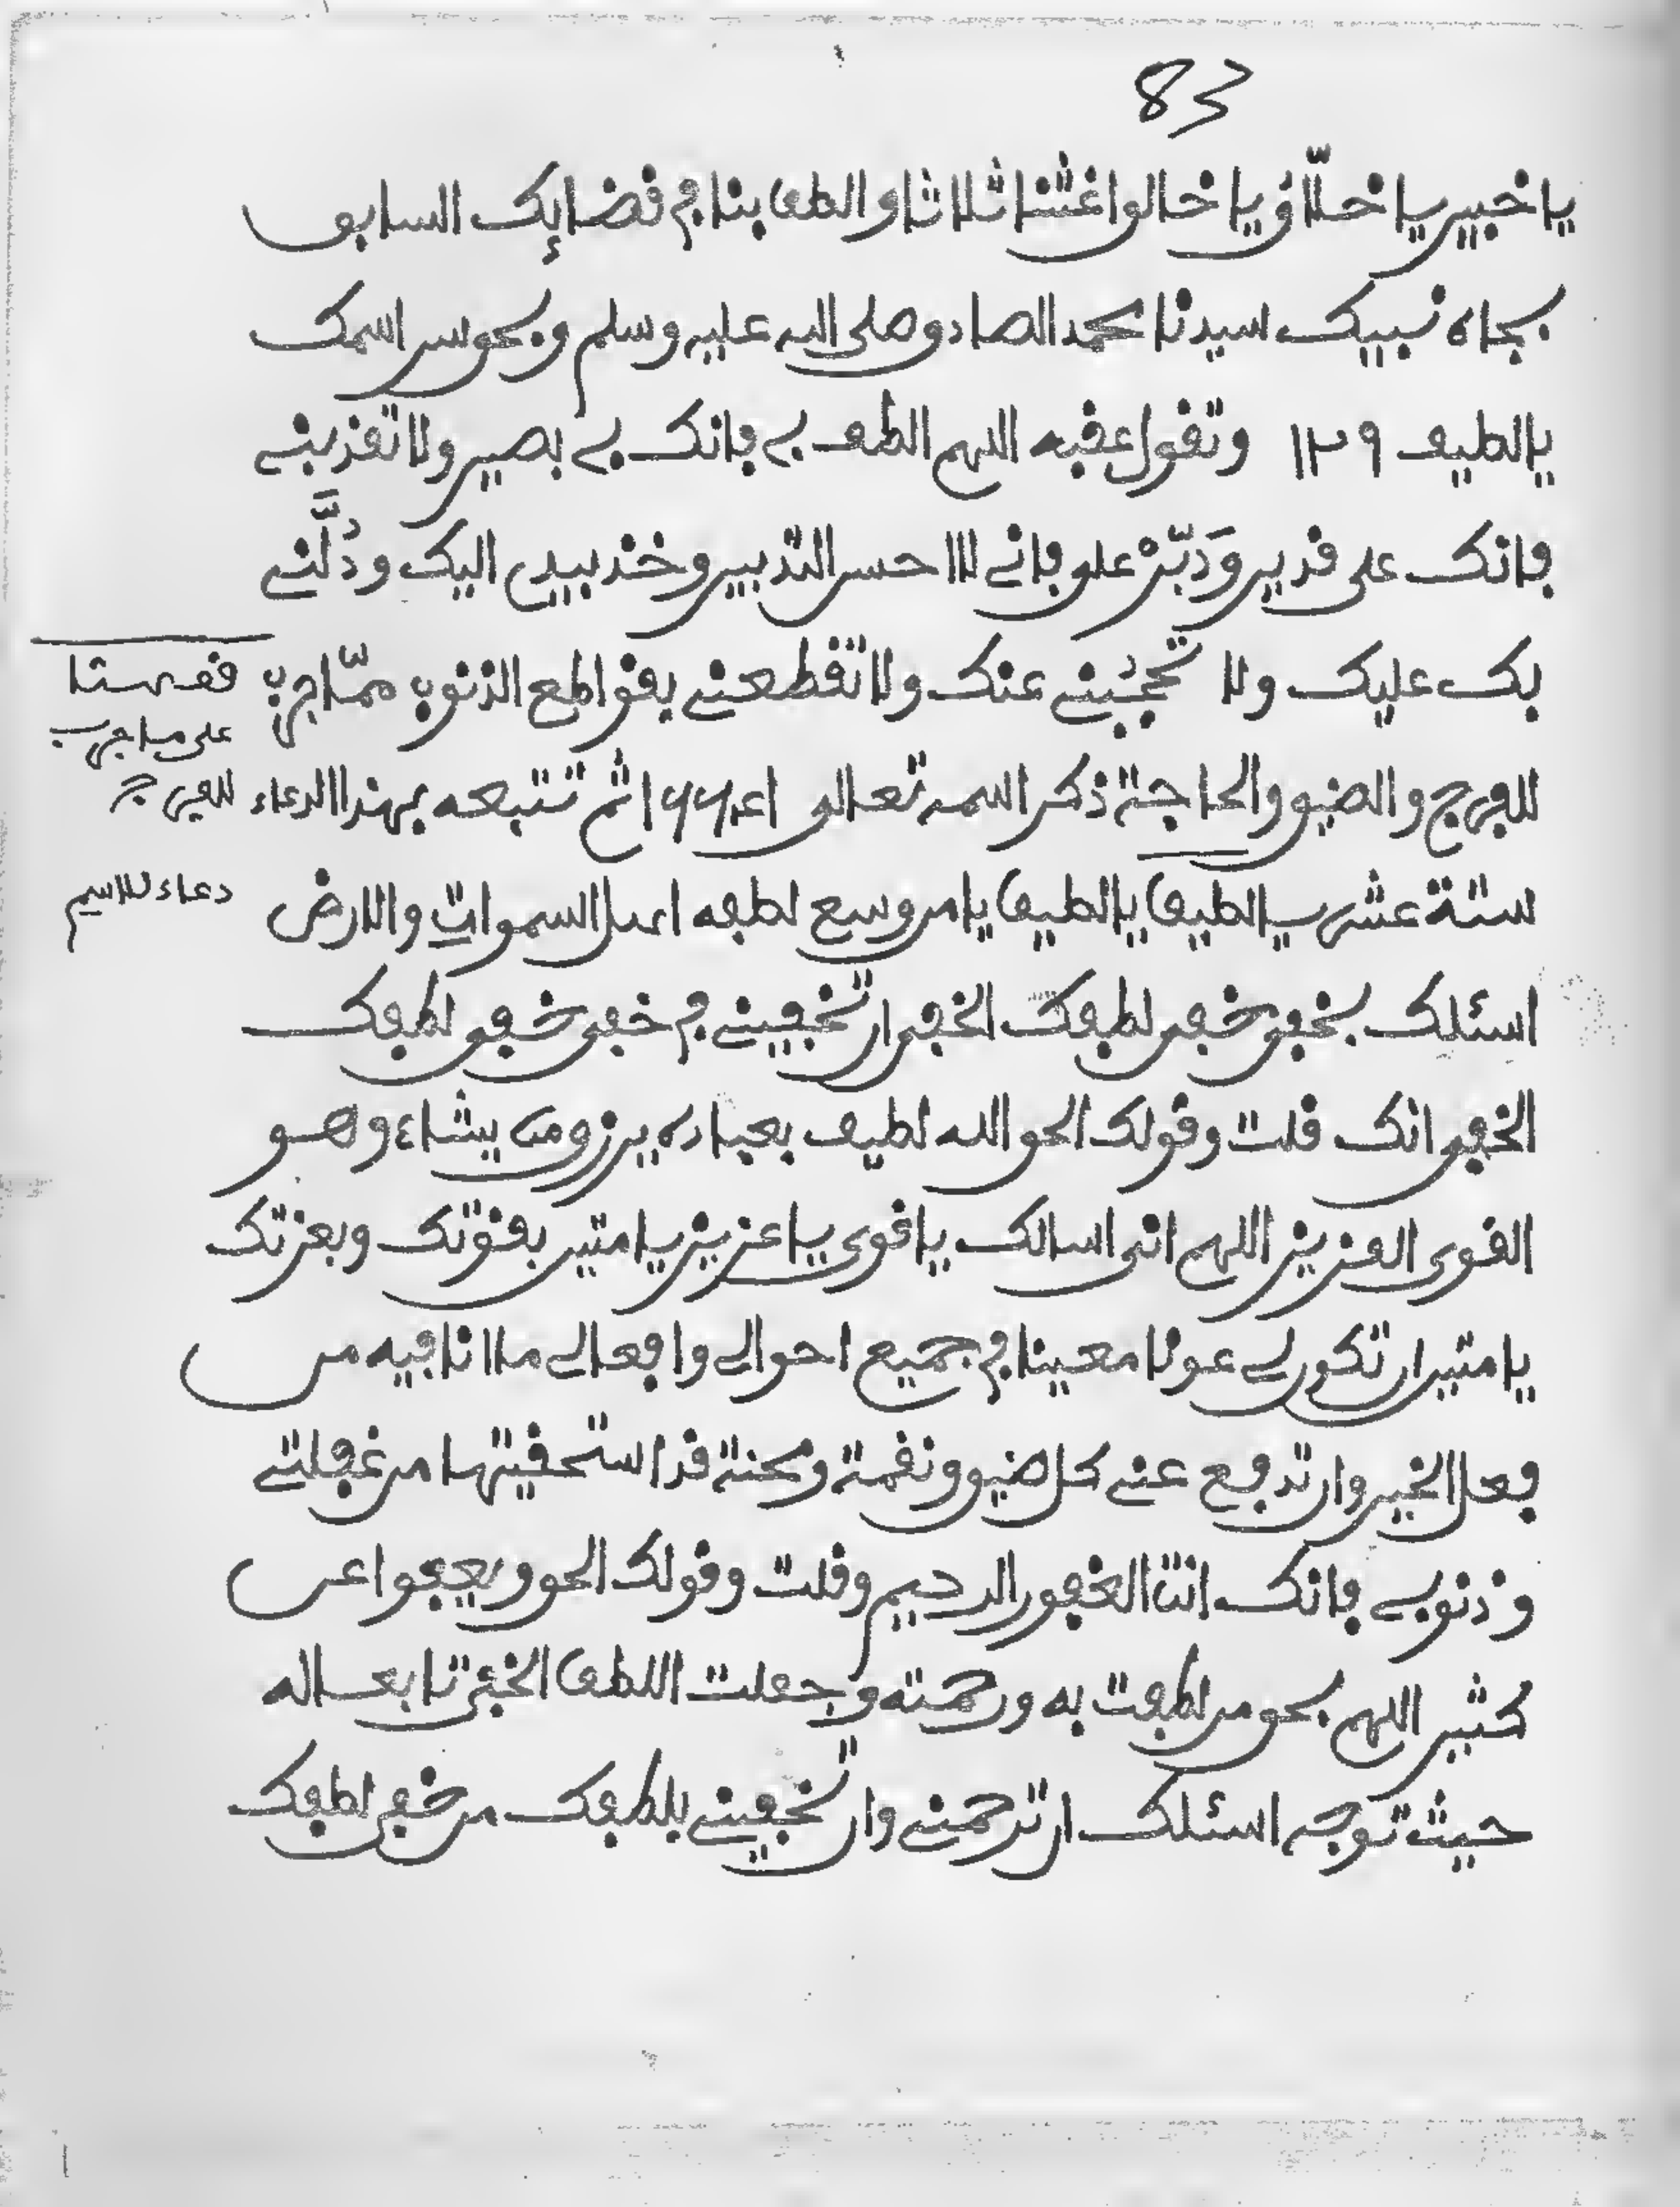 83
يا خبير يا خلّاق يا خالق اغثنا ثلاثا والطف بنا في قضائك السابق
بجاه نبيك سيدنا محمد الصادق صلى الله عليه وسلم وبحق سر اسمك
يالطيف ١٢٩ وتقول عقبه اللهم الطف بي فانك بي بصير ولا تعذبني
فانك على قدير وَدَبّرْ على فاني لا احسن التدبير وخذ بيدي اليك ودُلَّني
بك عليك ولا تحجُبني عنك ولا تقطعني بقواطع الذنوب ممّا جرب
قف هنا
على ما جرب
للفرج
للفرج والضيق والحاجة ذكر اسمه تعالى ثم تتبعه بهذا الدعاء
دعاء للاسم
ستة عشر يالطيف يالطيف يا من وسع لطفه اهل السموات والارض
اسئلك بخفي خفي لطفك الخفي ان تخفيني في خفي خفي لطفك
الخفي انك قلت وقولك الحق الله لطيف بعباده يرزق من يشاء وهو
القوى العزيز اللهم انى اسالك يا قوى يا عزيز يا متين بقوتك وبعزتك
يا متين ان تكون لي عونا معينا في جميع احوالي وافعالي ما انا فيه من
فعل الخير وان تدفع عني كل ضيق ونقمة ومحنة قد استحقيتها من غفلتي
وذنوبي فانك انت الغفور الرحيم وقلت وقولك الحق ويعفوا عن
كثير اللهم بحق من لطفت به ورحمته وجعلت اللطف الخفي تابعا له
حيث توجه اسئلك ان ترحمني وان تخفيني بلطفك من خفي لطفك